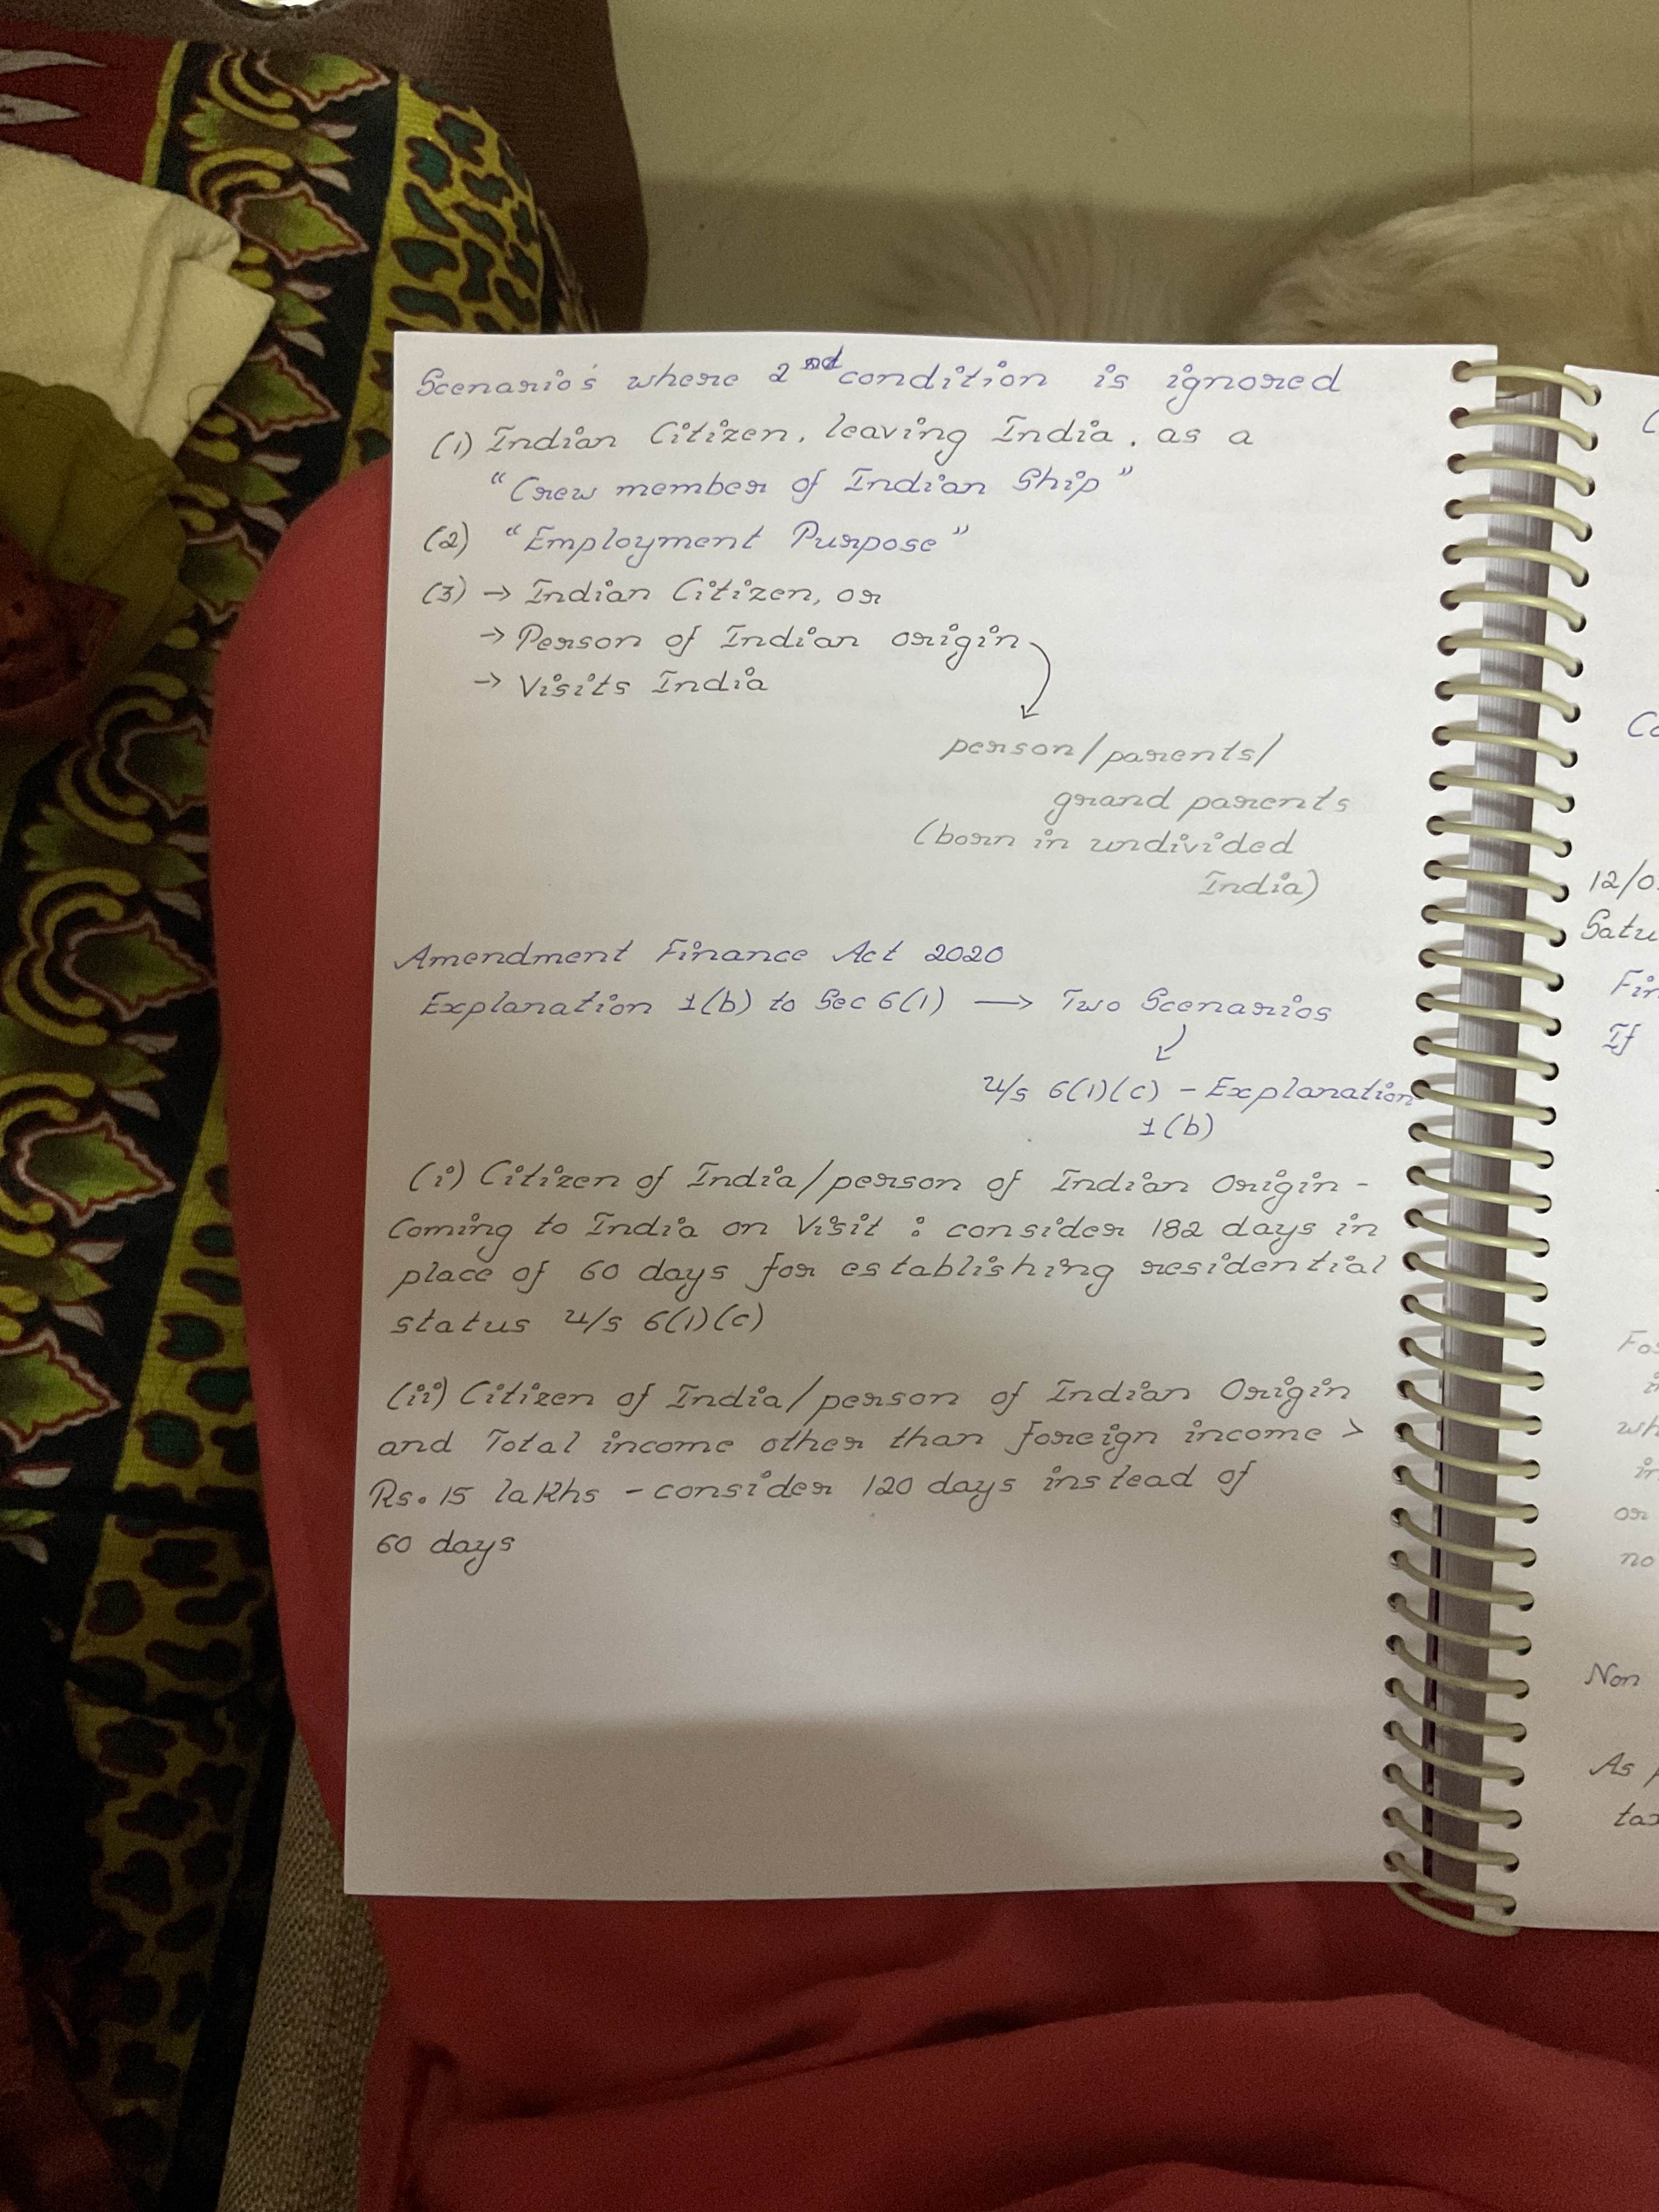 Scenario's where 2nd condition is ignored
(1) Indian Citizen, leaving India, as a
"Crew member of Indian Ship"
(2) "Employment Purpose"
(3) → Indian Citizen, or
→ Person of Indian origin
→ Visits India
person/parents/
grand parents
(born in undivided
India)
Amendment Finance Act 2020
Explanation 1(b) to Sec 6(1) → Two Scenarios
u/s 6(1)(c) - Explanation
1(b)
(i) Citizen of India/person of Indian Origin -
Coming to India on Visit : consider 182 days in
place of 60 days for establishing residential
status u/s 6(1)(c)
(ii) Citizen of India/person of Indian Origin
and Total income other than foreign income >
Rs. 15 lakhs - consider 120 days instead of
60 days
12/0
If
or
no
Non
As